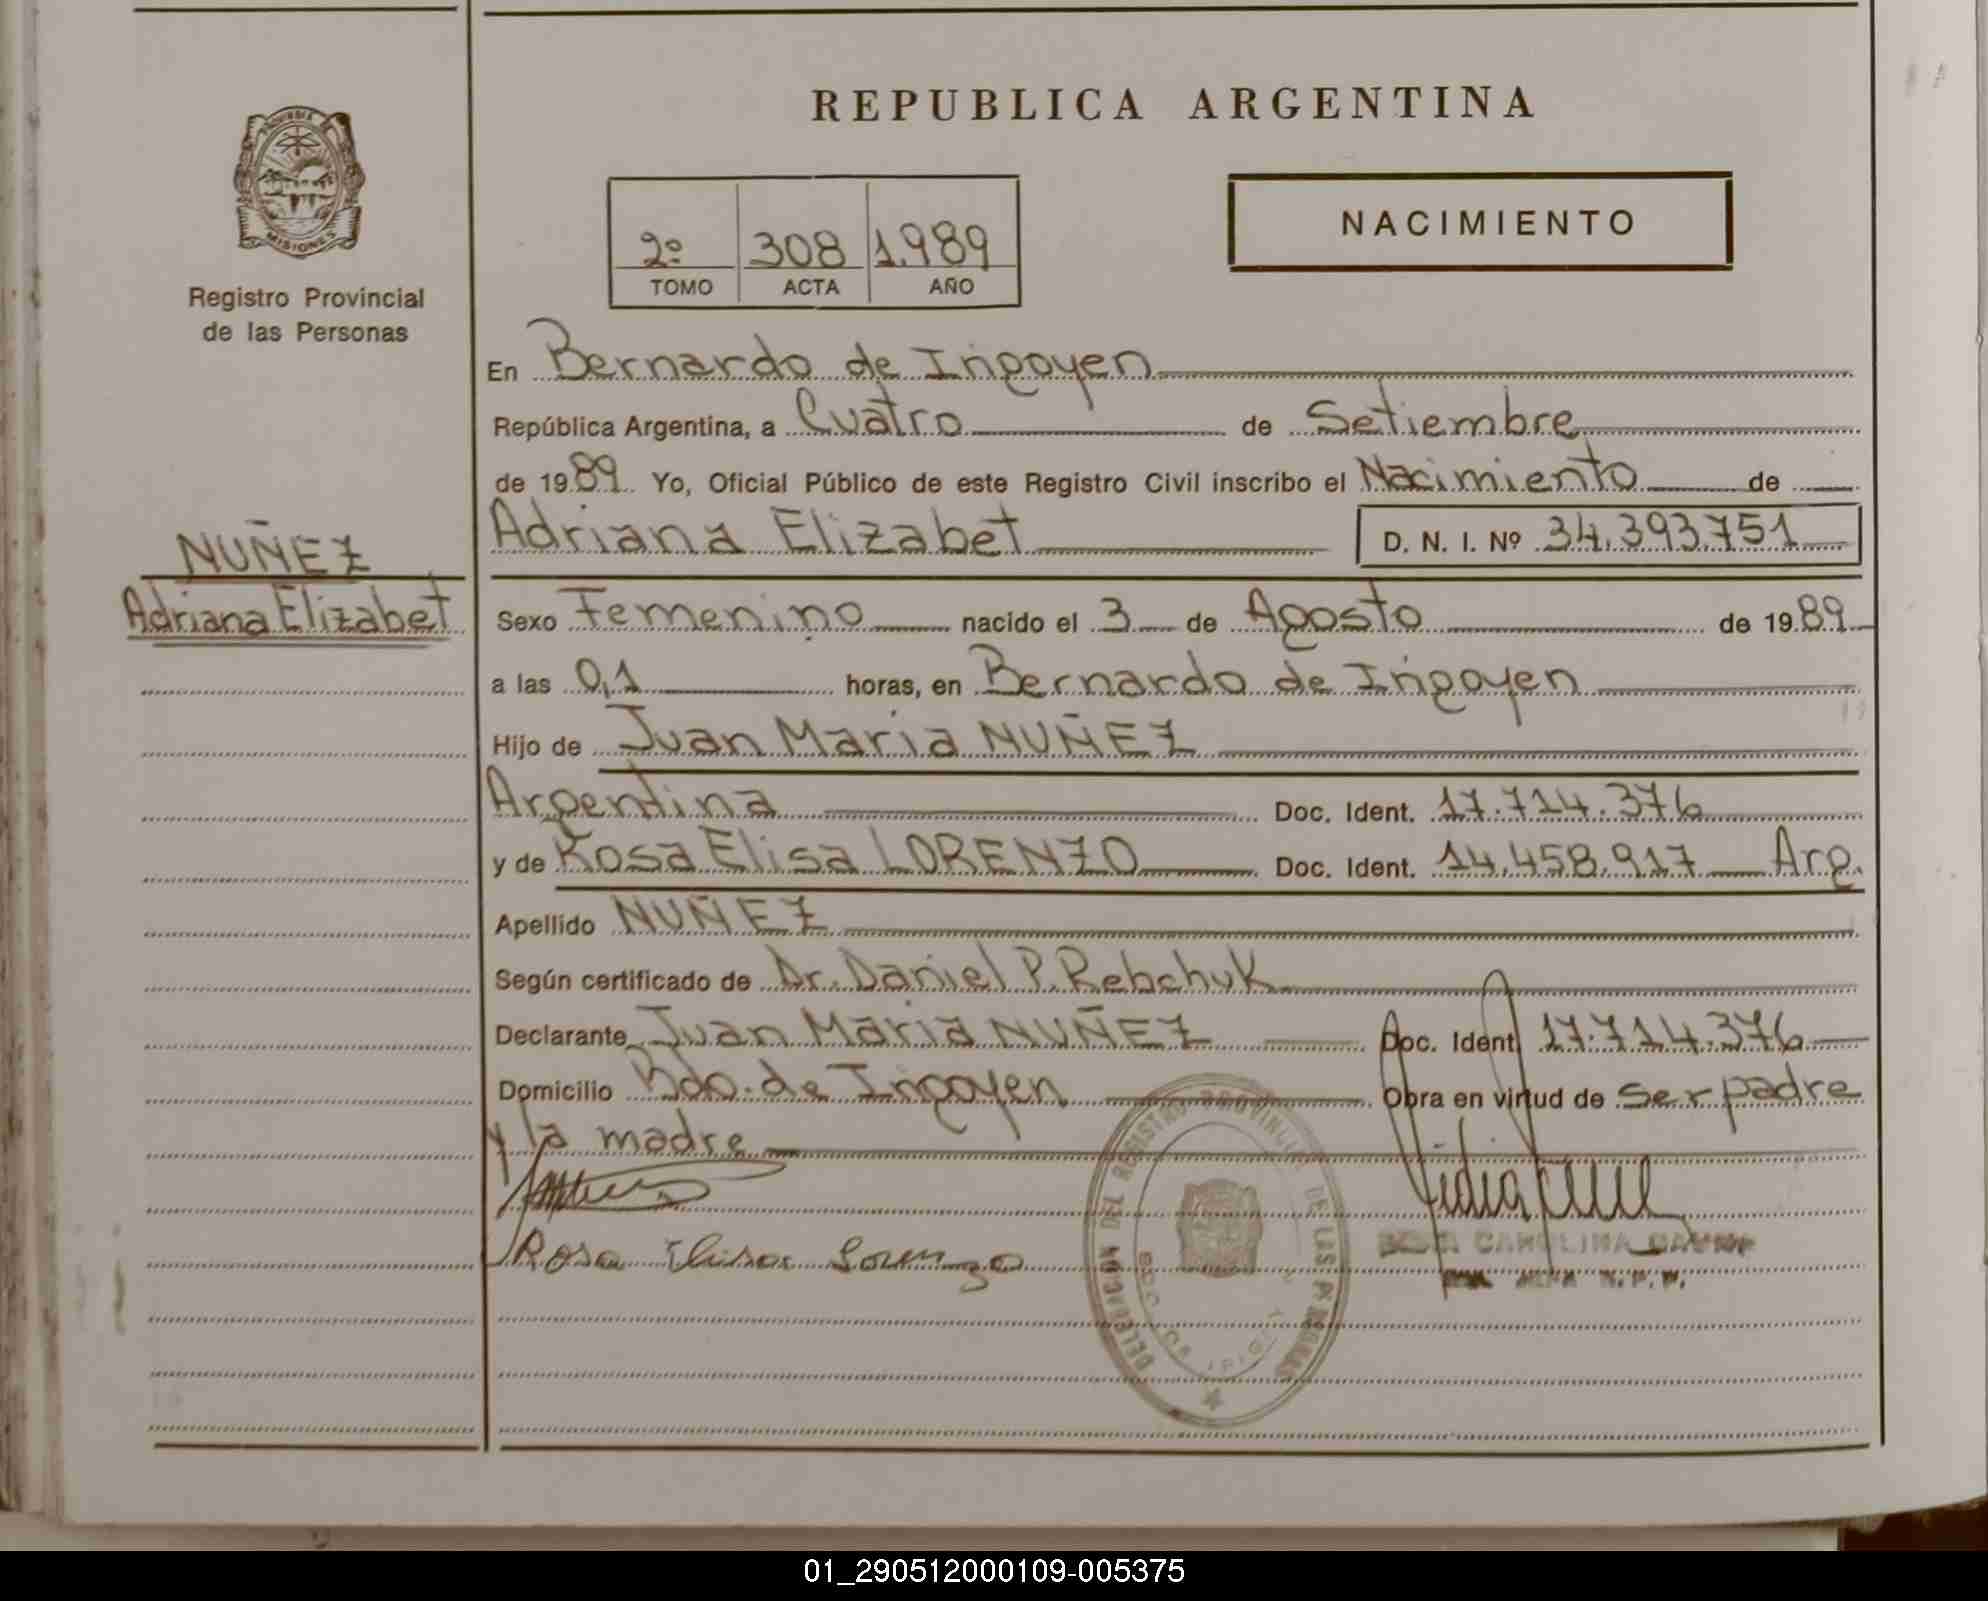 REPUBLICA ARGENTINA
PROVINCIA DE
MISIONES
Registro Provincial
de las Personas
NACIMIENTO
2º 308 1.989
TOMO ACTA AÑO
En Bernardo de Irigoyen
República Argentina, a Cuatro de Setiembre
de 1989 Yo, Oficial Público de este Registro Civil inscribo el Nacimiento de
Adriana Elizabet D. N. I. Nº 34.393.751
NUÑEZ
Adriana Elizabet
Sexo Femenino nacido el 3 de Agosto de 1989
a las 0,1 horas, en Bernardo de Irigoyen
Hijo de Juan Maria NUÑEZ
Argentina Doc. Ident. 17.714.376
y de Rosa Elisa LORENZO Doc. Ident. 14.458.917 Arg.
Apellido NUÑEZ
Según certificado de Dr. Daniel P. Rebchuk
Declarante Juan Maria NUÑEZ Doc. Ident. 17.714.376
Domicilio Bdo. de Irigoyen Obra en virtud de ser padre
y la madre
Rosa Elisa Lorenzo
DELEGACION DEL REGISTRO PROVINCIAL DE LAS PERSONAS
CAROLINA
01_290512000109-005375